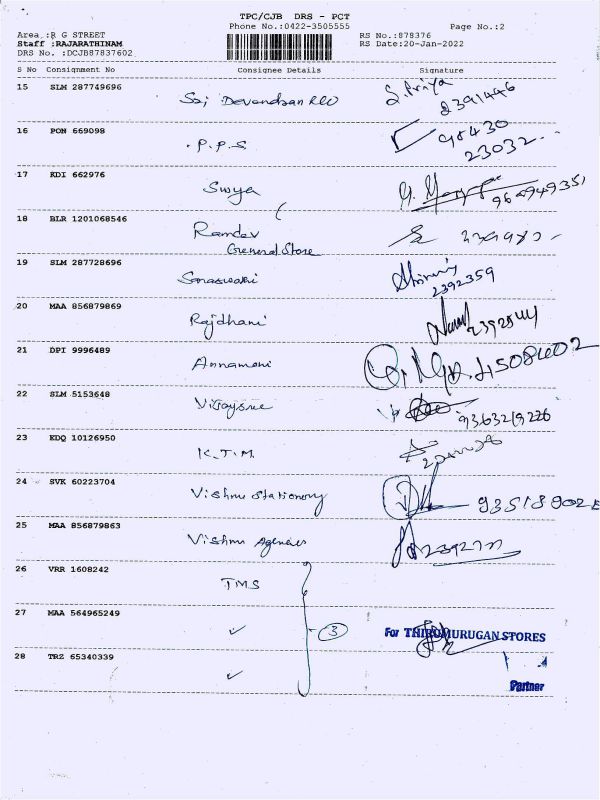 TPC/CJB DRS - PCT
Phone No.:0422-3505555
Page No.:2
Area :R G STREET
RS No.:878376
Staff :RAJARATHINAM
RS Date:20-Jan-2022
DRS No. :DCJB87837602
S No Consignment No Consignee Details Signature
15 SLM 287749696 Sai Devendran S. Priya
2391446
16 PON 669098 P.P.S. 98430
23032
17 KDI 662976 Surya
18 BLR 1201068546 Ramdev
General Store
19 SLM 287728696 Saraswathi
2392359
20 MAA 856879869 Rajdhani
21 DPI 9996489 Annamani 4508402
22 SLM 5153648 Vijaysree
9363219226
23 EDQ 10126950 K.T.M.
24 SVK 60223704 Vishnu Stationery
25 MAA 856879863 Vishnu Agencies
26 VRR 1608242 TMS
27 MAA 564965249 ✓ 3 For THIRUMURUGAN STORES
28 TRZ 65340339 ✓
Partner